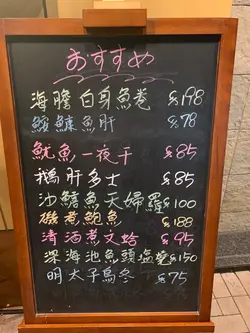 おすすめ
海膽白身魚卷 $198
鮟鱇魚肝 $78
魷魚一夜干 $85
鵝肝多士 $85
沙鱲魚天婦羅 $100
磯煮鮑魚 $188
清酒煮文蛤 $95
深海池魚頭塩燒 $150
明太子烏冬 $75